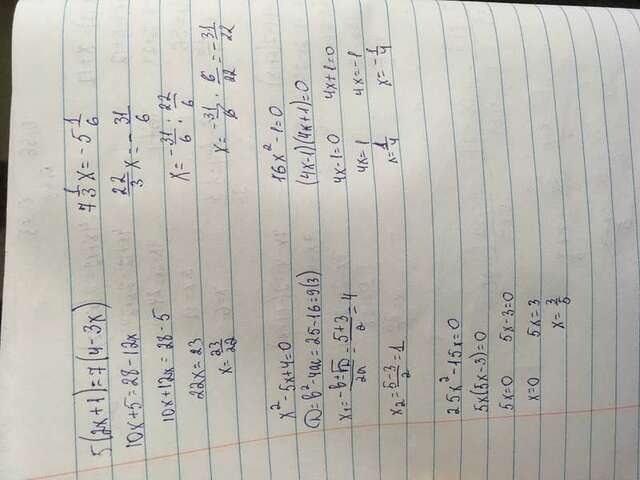 5(2x+1)=7(4-3x)
10x+5=28-12x
10x+12x=28-5
22x=23
x=23/22
7 1/3 x=-5 1/6
22/3 x=-31/6
x=-31/6 : 22/6
x=-31/6 · 6/22=-31/22
x²-5x+4=0
D=b²-4ac=25-16=9(3)
x₁=-b±√D/2a=5+3/2=4
x₂=5-3/2=1
16x²-1=0
(4x-1)(4x+1)=0
4x-1=0 4x+1=0
4x=1 4x=-1
x=1/4 x=-1/4
25x²-15x=0
5x(5x-3)=0
5x=0 5x-3=0
x=0 5x=3
x=3/5